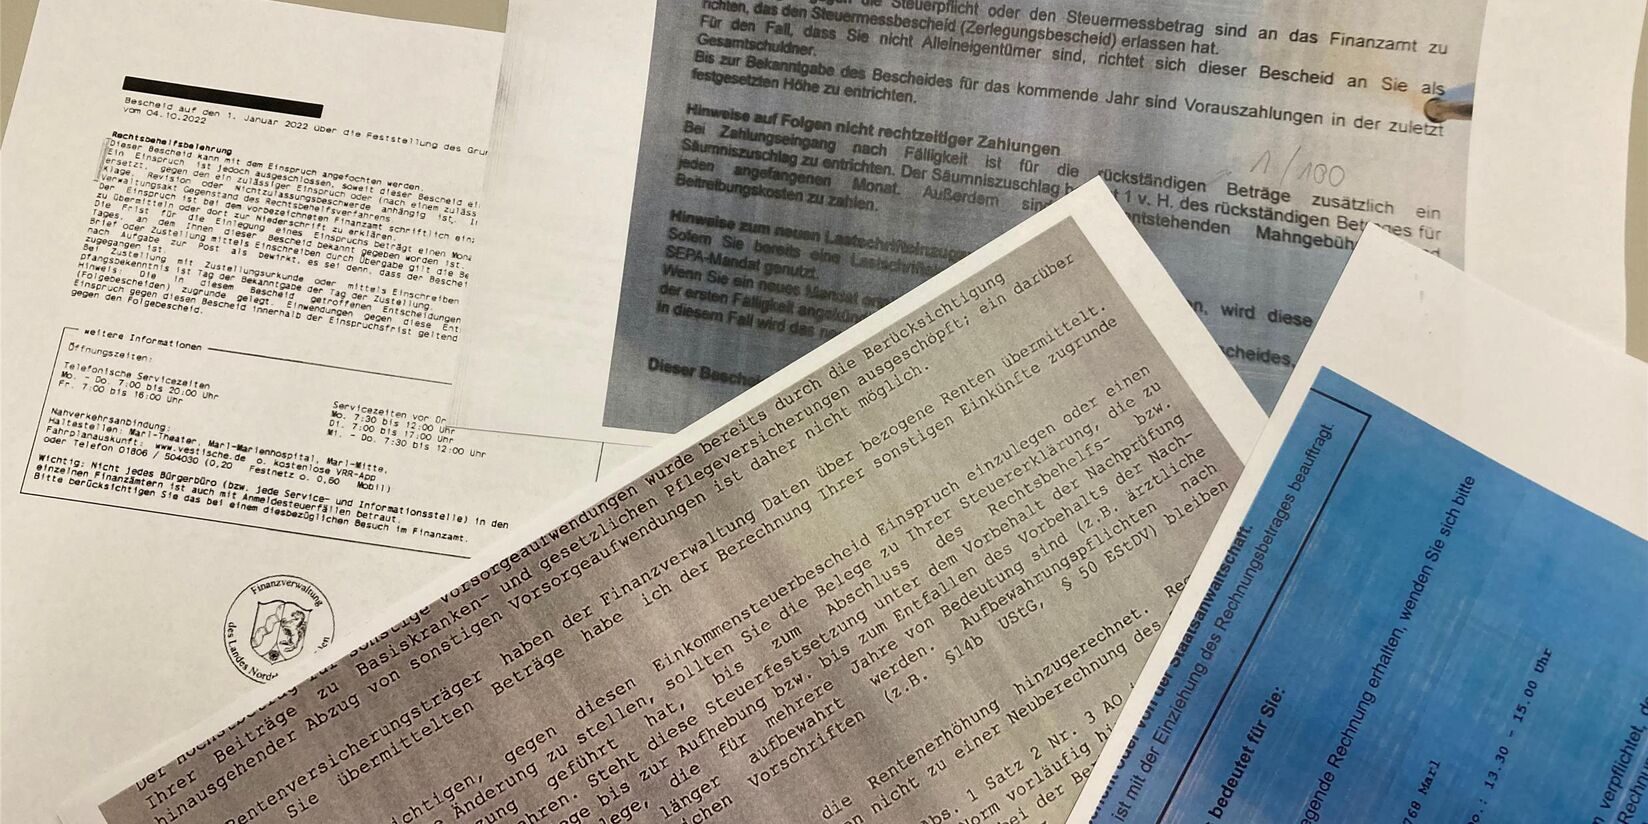 Bescheid auf den 1. Januar 2022 über die Feststellung des Grun
vom 04.10.2022
Rechtsbehelfsbelehrung
Dieser Bescheid kann mit dem Einspruch angefochten werden.
Ein Einspruch ist jedoch ausgeschlossen, soweit dieser Bescheid ei
ersetzt, gegen den ein zulässiger Einspruch oder (nach einem zuläss
Klage, Revision oder Nichtzulassungsbeschwerde anhängig ist. I
Verwaltungsakt Gegenstand des Rechtsbehelfsverfahrens.
Der Einspruch ist bei dem vorbezeichneten Finanzamt schriftlich ein
zu übermitteln oder dort zur Niederschrift zu erklären.
Die Frist für die Einlegung eines Einspruchs beträgt einen Mona
Tages, an dem Ihnen dieser Bescheid bekannt gegeben worden ist.
Brief oder Zustellung mittels Einschreiben durch Übergabe gilt die Be
nach Aufgabe zur Post als bewirkt, es sei denn, dass der Beschei
zugegangen ist.
Bei Zustellung mit Zustellungsurkunde oder mittels Einschreiben
pfangsbekenntnis ist Tag der Bekanntgabe der Tag der Zustellung.
Hinweis: Die in diesem Bescheid getroffenen Entscheidungen
(Folgebescheiden) zugrunde gelegt. Einwendungen gegen diese Ent
Einspruch gegen diesen Bescheid innerhalb der Einspruchsfrist geltend
gegen den Folgebescheid.
weitere Informationen
Öffnungszeiten:
Telefonische Servicezeiten
Mo. - Do. 7:00 bis 20:00 Uhr
Fr. 7:00 bis 16:00 Uhr
Servicezeiten vor Or
Mo. 7:30 bis 12:00 Uhr
Di. 7:00 bis 17:00 Uhr
Mi. - Do. 7:30 bis 12:00 Uhr
Nahverkehrsanbindung:
Haltestellen: Marl-Theater, Marl-Marienhospital, Marl-Mitte,
Fahrplanauskunft: www.vestische.de o. kostenlose VRR-App
oder Telefon 01806 / 504030 (0,20 Festnetz o. 0,60 Mobil)
Wichtig: Nicht jedes Bürgerbüro (bzw. jede Service- und Informationsstelle) in den
einzelnen Finanzämtern ist auch mit Anmeldesteuerfällen betraut.
Bitte berücksichtigen Sie das bei einem diesbezüglichen Besuch im Finanzamt.
Finanzverwaltung
des Landes Nordr
Steuerpflicht oder den Steuermessbetrag sind an das Finanzamt zu
richten, das den Steuermessbescheid (Zerlegungsbescheid) erlassen hat.
Für den Fall, dass Sie nicht Alleineigentümer sind, richtet sich dieser Bescheid an Sie als
Gesamtschuldner.
Bis zur Bekanntgabe des Bescheides für das kommende Jahr sind Vorauszahlungen in der zuletzt
festgesetzten Höhe zu entrichten.
Hinweise auf Folgen nicht rechtzeitiger Zahlungen
Bei Zahlungseingang nach Fälligkeit ist für die rückständigen Beträge zusätzlich ein
Säumniszuschlag zu entrichten. Der Säumniszuschlag b 1 v. H. des rückständigen Betrages für
jeden angefangenen Monat. Außerdem sind entstehenden Mahngebüh
Beitreibungskosten zu zahlen.
1/100
Hinweise zum neuen Lastschrifteinzug
Sofern Sie bereits eine Lastschrift
SEPA-Mandat genutzt.
Wenn Sie ein neues Mandat ert
der ersten Fälligkeit angekün
In diesem Fall wird das n
n, wird diese
Dieser Beschei
scheides,
vorsorgeaufwendungen wurde bereits durch die Berücksichtigung
Ihrer Beiträge zu Basiskranken- und gesetzlichen Pflegeversicherungen ausgeschöpft; ein darüber
hinausgehender Abzug von sonstigen Vorsorgeaufwendungen ist daher nicht möglich.
Rentenversicherungsträger haben der Finanzverwaltung Daten über bezogene Renten übermittelt.
Sie übermittelten Beträge habe ich der Berechnung Ihrer sonstigen Einkünfte zugrunde
chtigen, gegen diesen Einkommensteuerbescheid Einspruch einzulegen oder einen
Änderung zu stellen, sollten Sie die Belege zu Ihrer Steuererklärung, die zu
ung geführt hat, bis zum Abschluss des Rechtsbehelfs- bzw.
ahren. Steht diese Steuerfestsetzung unter dem Vorbehalt der Nachprüfung
ge bis zur Aufhebung bzw. bis zum Entfallen des Vorbehalts der Nach-
lege, die für mehrere Jahre von Bedeutung sind (z.B. ärztliche
länger aufbewahrt werden. Aufbewahrungspflichten nach
ichen Vorschriften (z.B. §14b UStG, § 50 EStDV) bleiben
die Rentenerhöhung hinzugerechnet. Re
en nicht zu einer Neuberechnung des
bs. 1 Satz 2 Nr. 3 AO
Norm vorläufig hi
bei der Be
der Staatsanwaltschaft.
ist mit der Einziehung des Rechnungsbetrages beauftragt.
bedeutet für Sie:
gende Rechnung erhalten, wenden Sie sich bitte
768 Marl
o.: 13.30 - 15.00 Uhr
verpflichtet, de